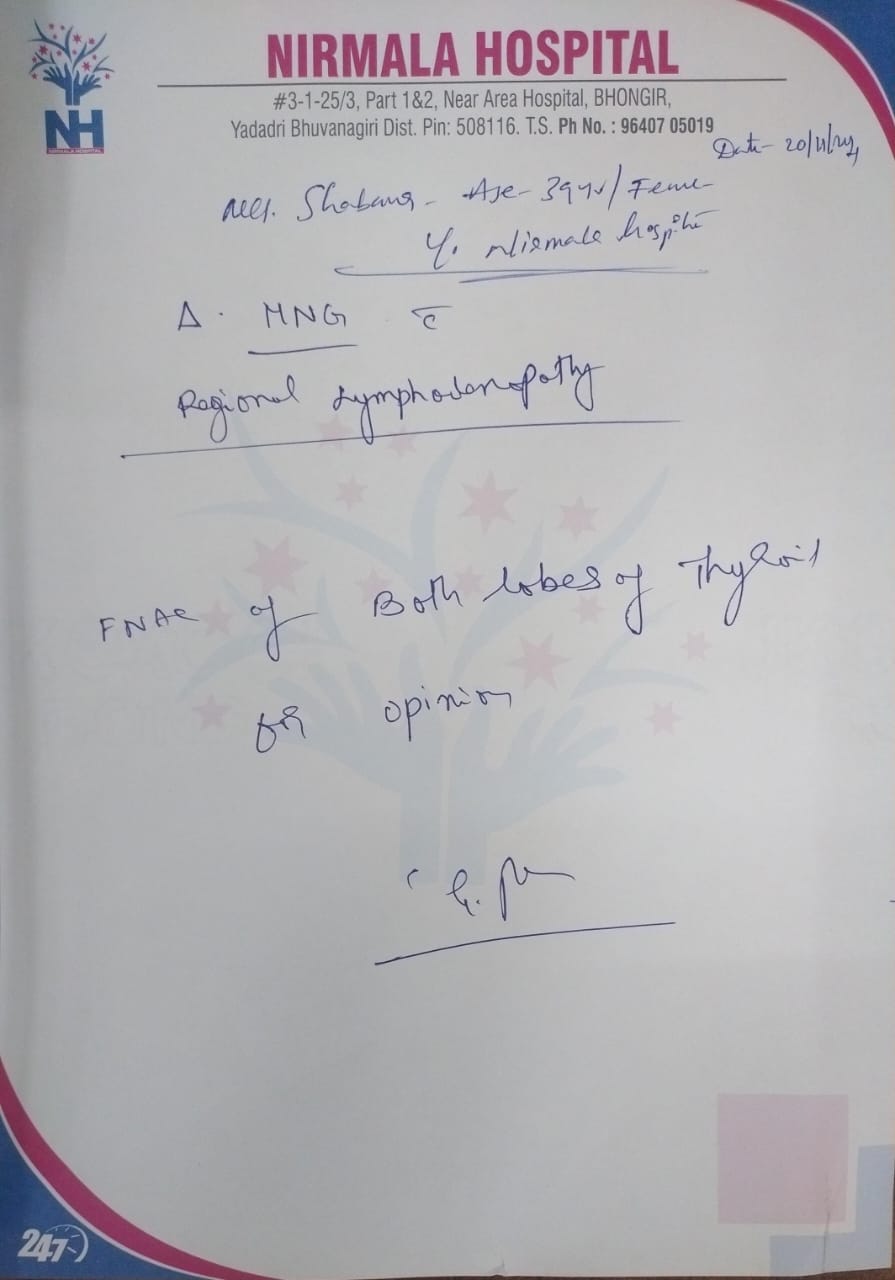 NIRMALA HOSPITAL
#3-1-25/3, Part 1&2, Near Area Hospital, BHONGIR,
Yadadri Bhuvanagiri Dist. Pin: 508116. T.S. Ph No. : 96407 05019
NH
NIRMALA HOSPITAL
Date- 20/11/24
Shabana - Age- 39 yr/
Nirmala hospital
Δ. MNG c̄
Regional Lymphodenopathy
FNAC of Both lobes of Thyroid
for opinion
24/7